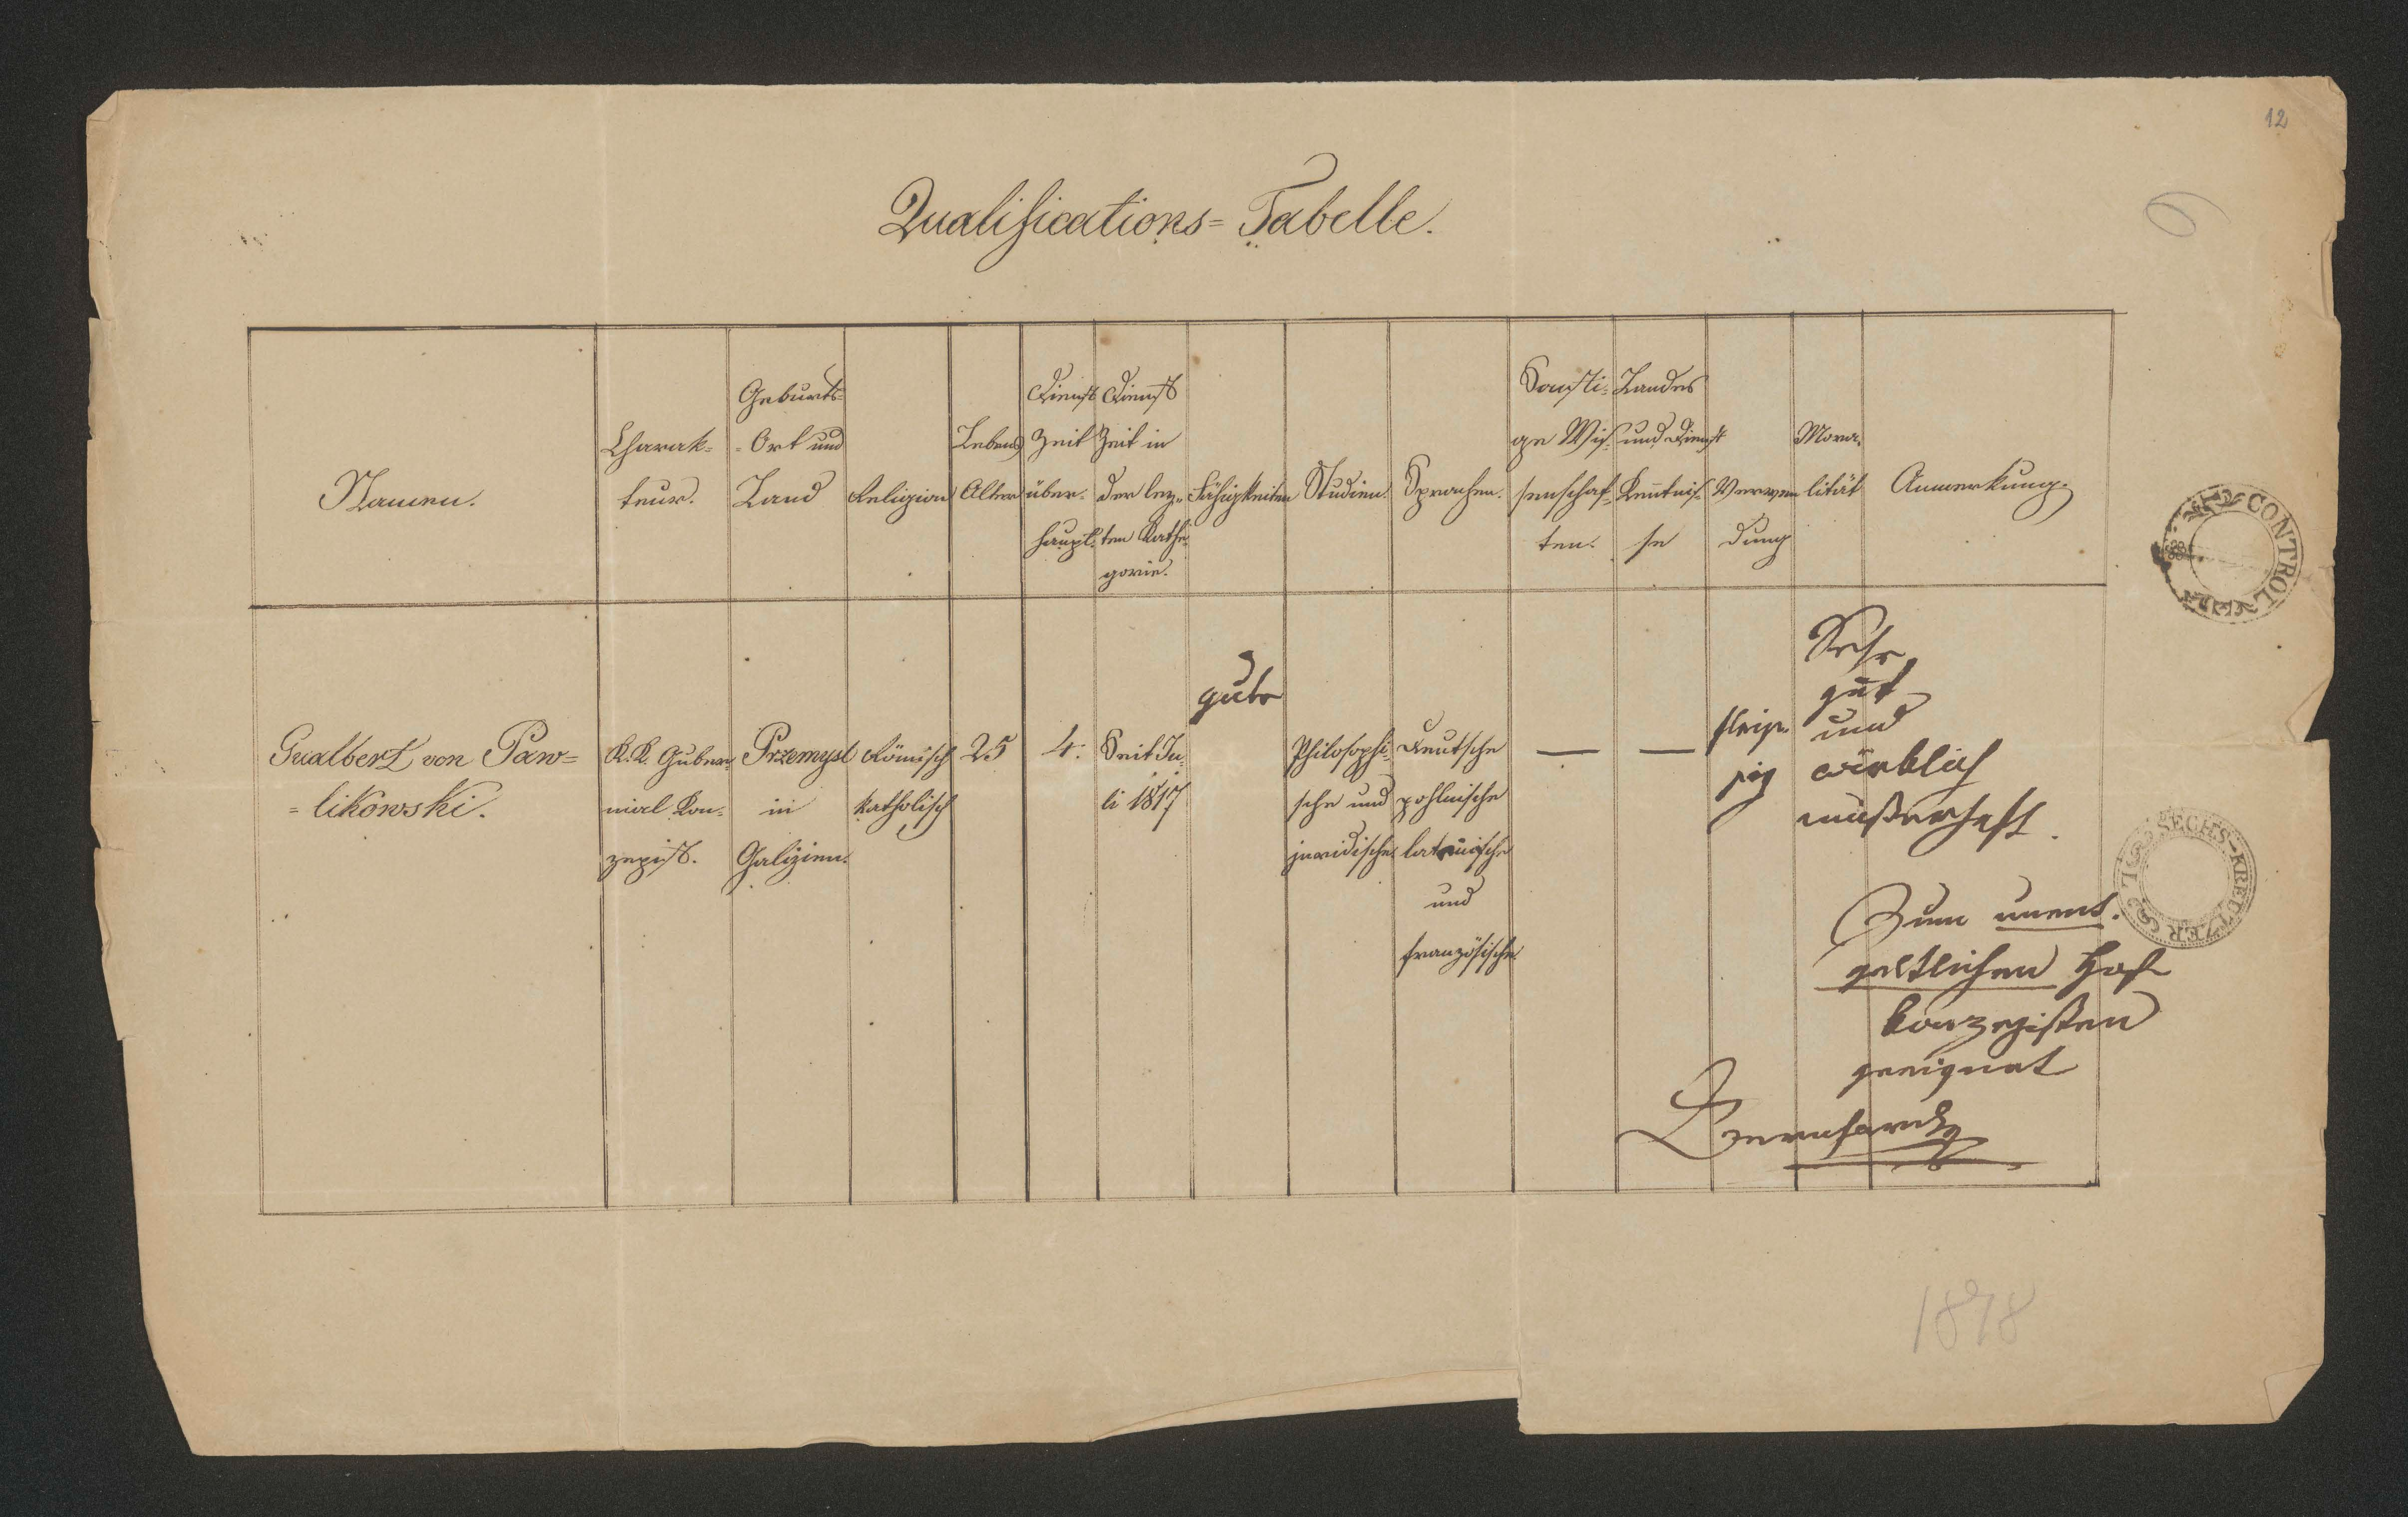 12
6
Qualifications=Tabelle.
Namen.
Charak=
teur.
Geburts=
=Ort und
Land
Religion
Lebens
Alter
Dienst
Zeit
über=
haupt.
Dienst
Zeit in
der lez=
ten Kathe=
gorie.
Fähigkeiten
Studien.
Sprachen.
Sonsti=
ge Wis=
senschaf=
ten.
Landes
und Dienst
Kentnis=
se
Verwen
dung
Mora=
lität
Anmerkung.
Gualbert von Paw=
=likowski.
K.K. Guber=
nial Kon=
zepist.
Przemysl
in
Galizien.
Römisch
katholisch
25
4.
Seit Ju=
li 1817
gute
Philosophi=
sche und
juridische
Deutsche
pohlnische
lateinische
und
französische
—
—
fleiß=
sig
Sehr
gut
und
wirklich
musterhaft.
Zum unent=
geltlichen Hof
konzepisten
geeignet
CONTROL
SECHS-KREUZER